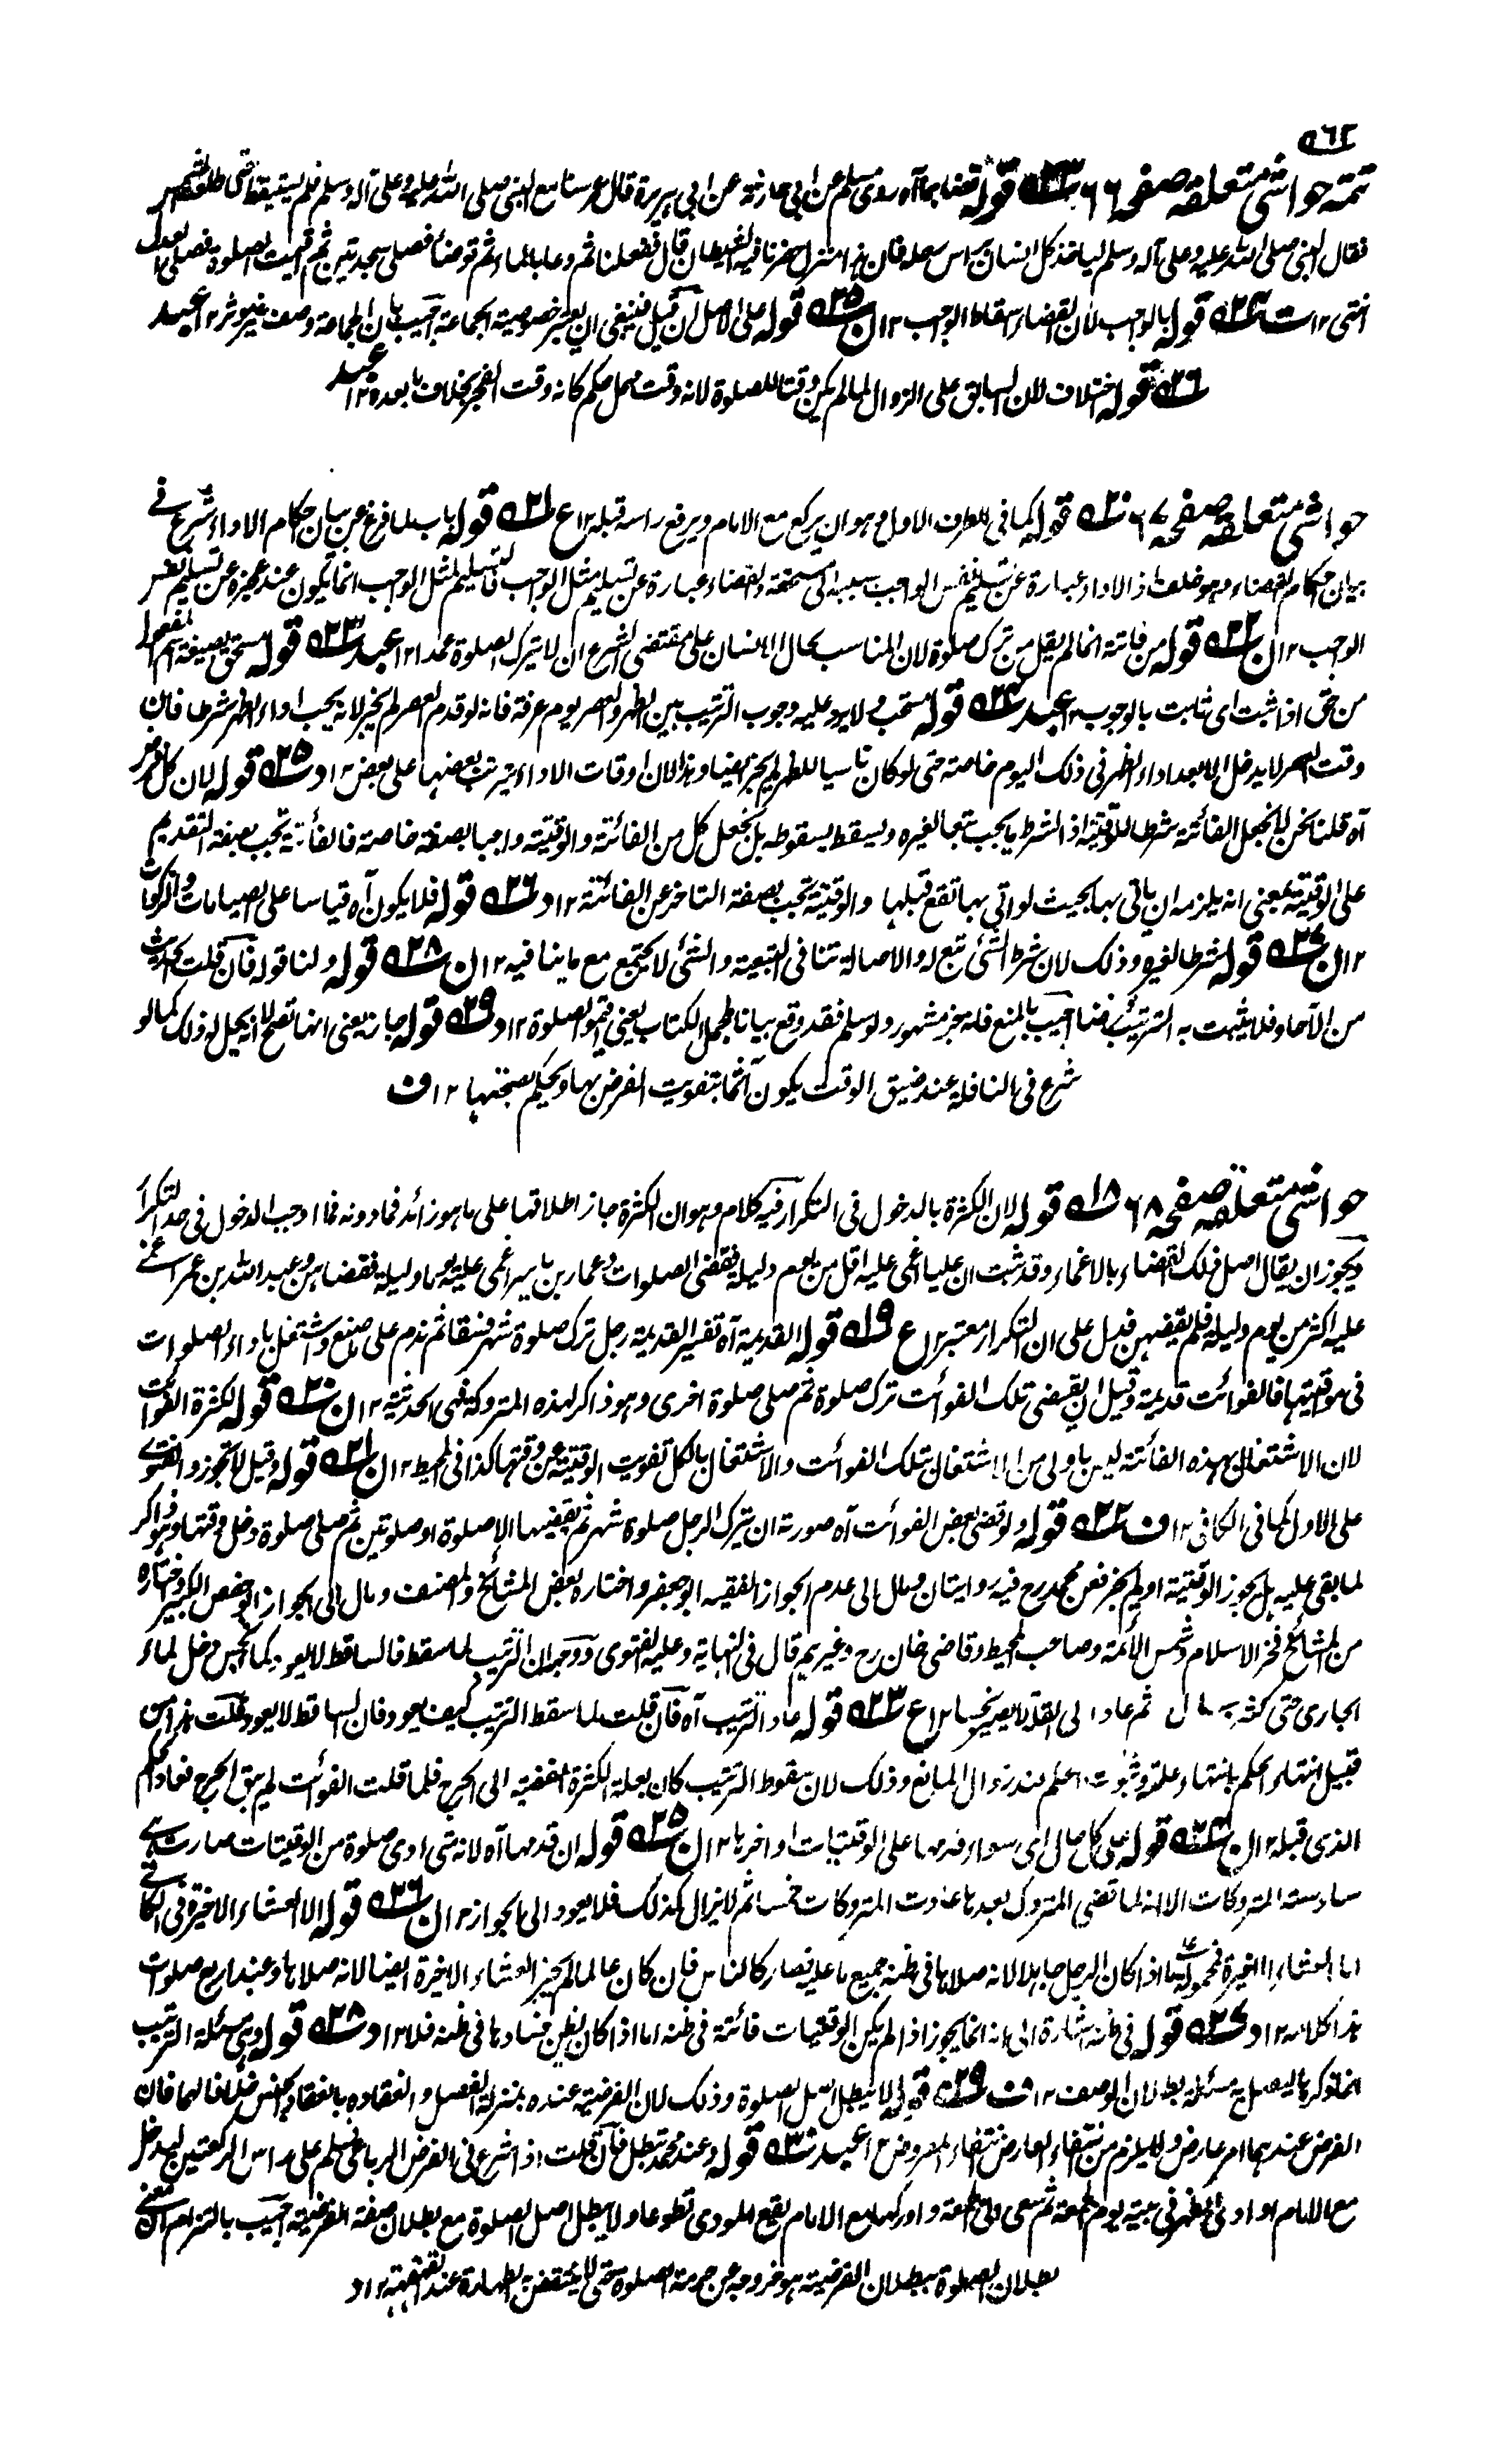 ٥٦٢
تتمة حواشی متعلقة صفحه ٦٦ ٢٣ قوله قضاها آه روی مسلم عن ابی حازم عن ابی هریرة قال عرسنا مع النبی صلی الله علیه وعلی آله وسلم فلم یستیقظ حتی طلعت الشمس
فقال النبی صلی الله علیه وعلی آله وسلم لیاخذ کل انسان براس رحله فان هذا منزل حضرنا فیه الشیطان قال ففعلنا ثم دعا بالماء ثم توضأ فصلی سجدتین ثم اقیمت الصلوة فصلی الغداة
انتهی ١٢ ت ٢٤ قوله بالواجب لان القضاء اسقاط الواجب ١٢ ن ٢٥ قوله علی الاصل آن قیل فینبغی ان یعتبر خصوصیة الجماعة اجیب بان الجماعة وصف غیر مؤثر ١٢ عبید
٢٦ قوله اختلاف لان السابق علی الزوال لما لم یکن وقتا للصلوة لانه وقت مهمل حکم کانه وقت الفجر بخلاف ما بعده ١٢ عبید
حواشی متعلقة صفحه ٦٧ ٢٠ قوله کما فی الطرف الاول وهو ان یرکع مع الامام ویرفع راسه قبله ١٢ ع ٢١ قوله باب لما فرغ عن بیان احکام الاداء شرع فی
بیان احکام القضاء وهو خلفه اذ الاداء عبارة عن تسلیم نفس الواجب بسببه الی مستحقه والقضاء عبارة عن تسلیم مثل الواجب فالتسلیم لمثل الواجب انما یکون عند عجزه عن تسلیم نفس
الواجب ١٢ ن ٢٢ قوله من فاتته انما لم یقل من ترک صلوة لان المناسب بحال الانسان علی مقتضی الشرع ان لا یترک الصلوة عمدا ١٢ عبد ٢٣ قوله مستحق بصیغة اسم المفعول
من حق اذا ثبت ای ثابت بالوجوب ١٢ عبد ٢٤ قوله مستحب ولا یرد علیه وجوب الترتیب بین الظهر والعصر یوم عرفة فانه لو قدم العصر لم یجز لانه یجب اداء الظهر شرطا فان
وقت العصر لا یدخل الا بعد اداء الظهر فی ذلک الیوم خاصة حتی لو کان ناسیا للظهر لم یجز ایضا وهذا لان اوقات الاداء یترتب بعضها علی بعض ١٢ د ٢٥ قوله لان کل فرض
آه قلنا نحن لا نجعل الفائتة شرطا للوقتیة اذ الشرط ما یجب تبعا لغیره ویسقط بسقوطه بل نجعل کل من الفائتة والوقتیة واجبا بصفة خاصة فالفائتة تجب بصفة التقدیم
علی الوقتیة بمعنی انه یلزمه ان یاتی بها بحیث لو اتی بها تقع قبلها والوقتیة تجب بصفة التاخر عن الفائتة ١٢ د ٢٦ قوله فلا یکون آه قیاسا علی الصیامات والزکوات
١٢ ن ٢٧ قوله شرطا لغیره وذلک لان شرط الشئ تبع له والاصالة تنافی التبعیة والشئ لا یجتمع مع ما ینافیه ١٢ ن ٢٨ قوله ولنا قوله فان قلت الحدیث
من الآحاد فلا یثبت به الترتیب فرضا اجیب بالمنع فانه خبر مشهور ولو سلم فقد وقع بیانا لمجمل الکتاب یعنی اقیموا الصلوة ١٢ د ٢٩ قوله جاز یعنی انها تصح لا انه یحل له ذلک کما لو
شرع فی النافلة عند ضیق الوقت یکون آثما بتفویت الفرض بها ویحکم بصحتها ١٢ ف
حواشی متعلقة صفحه ٦٨ ١٨ قوله لان الکثرة بالدخول فی التکرار فیه کلام وهو ان الکثرة جاز اطلاقها علی ما هو زائد فما دونه فما اوجب الدخول فی حد التکرار
ویجوز ان یقال اصل ذلک القضاء بالاغماء وقد ثبت ان علیا اغمی علیه اقل من یوم ولیلة فقضی الصلوات وعمار بن یاسر اغمی علیه یوما ولیلة فقضاهن وعبد الله بن عمر اغمی
علیه اکثر من یوم ولیلة فلم یقضهن فدل علی ان التکرار معتبر ١٢ ع ١٩ قوله القدیمة آه تفسیر القدیمة رجل ترک صلوة شهر فسقا ثم ندم علی ما صنع واشتغل باداء الصلوات
فی مواقیتها فالفوائت قدیمة وقبل ان یقضی تلک الفوائت ترک صلوة ثم صلی صلوة اخری وهو ذاکر لهذه المتروکة فهی الحدیثة ١٢ ن ٢٠ قوله لکثرة الفوائت
لان الاشتغال بهذه الفائتة لیس باولی من الاشتغال بتلک الفوائت والاشتغال بالکل تفویت الوقتیة عن وقتها کذا فی المحیط ١٢ ن ٢١ قوله وقیل لا تجوز والفتوی
علی الاول کما فی الکافی ١٢ ف ٢٢ قوله ولو قضی بعض الفوائت آه صورته ان یترک الرجل صلوة شهر ثم یقضیها الا صلوة او صلوتین ثم صلی صلوة دخل وقتها وهو ذاکر
لما بقی علیه هل یجوز الوقتیة او لم یجز فعن محمد رح فیه روایتان ومال الی عدم الجواز الفقیه ابو جعفر واختاره بعض المشائخ والمصنف ومال الی الجواز ابو حفص الکبیر واختاره
من المشائخ فخر الاسلام وشمس الائمة وصاحب المحیط وقاضی خان رح وغیرهم قال فی النهایة وعلیه الفتوی ووجهه ان الترتیب لما سقط فالساقط لا یعود کماء نجس دخل الماء
الجاری حتی کثر وسال ثم عاد الی القلة لا یصیر نجسا ١٢ ع ٢٣ قوله عاد الترتیب آه فان قلت لما سقط الترتیب کیف یعود فان الساقط لا یعود قلت هذا من
قبیل انتهاء الحکم بانتهاء علته وثبوت الحکم عند زوال المانع وذلک لان سقوط الترتیب کان بعلة الکثرة المفضیة الی الحرج فلما قلت الفوائت لم یبق الحرج فعاد الحکم
الذی قبله ١٢ ن ٢٤ قوله علی کل حال ای سواء قدمها علی الوقتیات او اخرها ١٢ ن ٢٥ قوله ان قدمها آه لانه متی ادی صلوة من الوقتیات صارت هی
سادسة المتروکات الا انه لما قضی المتروکة بعدها عادت المتروکات خمسا ثم لا یزال کذلک فلا یعود الی الجواز ١٢ ن ٢٦ قوله الا العشاء الاخیرة فی الکافی
اما العشاء الاخیرة فمحمولة علی ما اذا کان الرجل جاهلا لانه صلاها فی ظنه جمیع ما علیه فصار کالناسی فان کان عالما لم یجز العشاء الاخیرة ایضا لانه صلاها وعنده اربع صلوات
هذا کلامه ١٢ د ٢٧ قوله فی ظنه اشارة الی انه انما یجوز اذا لم یکن الوقتیات فائتة فی ظنه اما اذا کان یظن فسادها فی ظنه فلا ١٢ د ٢٨ قوله وهی مسئلة الترتیب
انما ذکرها لیصل به مسئلة بطلان الوصف ١٢ ف ٢٩ قوله لا یبطل اصل الصلوة وذلک لان الفرضیة عنده بمنزلة الفصل وانعقاده بانعقاد الجنس خلافا لهما فان
الفرض عندهما امر عارض ولا یلزم من انتفاء العارض انتفاء المعروض ١٢ عبد ٣٠ قوله وعند محمد تبطل فان قلت اذا شرع فی الفرض الرباعی فسلم علی راس الرکعتین لیدخل
مع الامام او ادی الظهر فی بیته یوم الجمعة ثم سعی الی الجمعة وادرکها مع الامام یقع المودی تطوعا ولا یبطل اصل الصلوة مع بطلان صفة الفرضیة اجیب بالتزام ان معنی
بطلان الصلوة ببطلان الفرضیة هو خروجه عن حرمة الصلوة حتی لا ینتقض الطهارة عند القهقهة ١٢ د